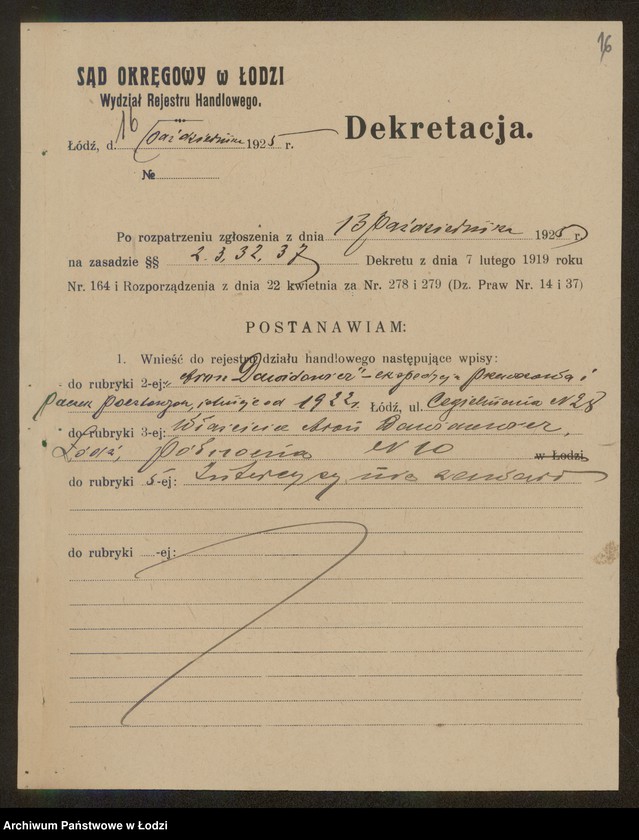 16
SĄD OKRĘGOWY w ŁODZI
Wydział Rejestru Handlowego.
Łódź, d. 16 października 1925 r.
Dekretacja.
№
Po rozpatrzeniu zgłoszenia z dnia 13 października 1925 r.
na zasadzie §§ 2. 3, 32, 37 Dekretu z dnia 7 lutego 1919 roku
Nr. 164 i Rozporządzenia z dnia 22 kwietnia za Nr. 278 i 279 (Dz. Praw Nr. 14 i 37)
POSTANAWIAM:
1. Wnieść do rejestru działu handlowego następujące wpisy:
do rubryki 2-ej: „Aron Dawidowicz" – ekspedycja przewozowa i
paczek pocztowych, istnieje od 1922 r. Łódź, ul. Cegielniana N 28
do rubryki 3-ej: Właściciel Aron Dawidowicz,
Łódź, Północna N 10 w Łodzi
do rubryki 5-ej: Intercyzy nie zawarł
do rubryki -ej:
Archiwum Państwowe w Łodzi